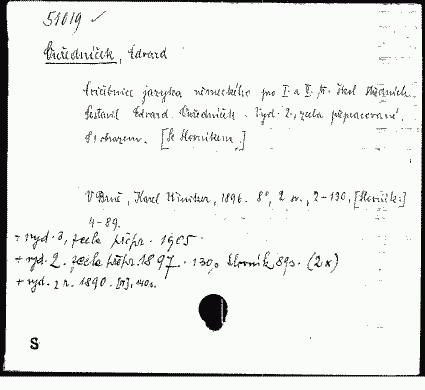 51019 ✓
Ouředníček, Edvard
Cvičebnice jazyka německého pro I. a II. tř. škol středních.
Sestavil Edvard Ouředníček. Vyd. 2., zcela přepracované.
S obrazem. [Se slovníkem.]
V Brně, Karel Winiker, 1896. 8°, 2 sv., 2-130, [Slovník:]
4-89.
+ vyd. 3, zcela přepr. 1905
+ vyd. 2. zcela přepr. 1897. 130, Slovník 89s. (2x)
+ vyd. z r. 1890. 140s.
S